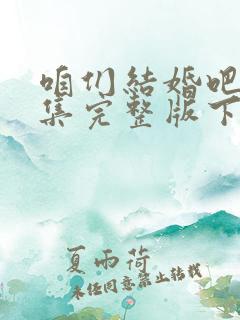 咱们结婚吧
集完整版下
夏雨荷
未经同意禁止转载